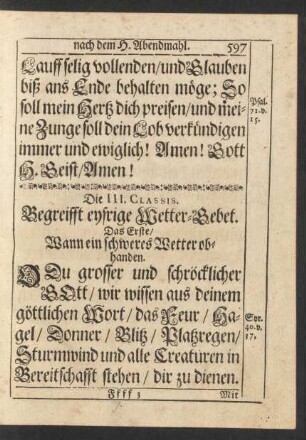 nach dem H. Abendmahl. 597
Lauff selig vollenden/und Glauben
biß ans Ende behalten möge; So
soll mein Hertz dich preisen/und mei-
ne Zunge soll dein Lob verkündigen
immer und ewiglich! Amen! Gott
H. Geist/Amen!
Psal.
71. v.
15.
Die III. CLASSIS.
Begreifft eyfrige Wetter-Gebet.
Das Erste/
Wann ein schweres Wetter ob-
handen.
O Du grosser und schröcklicher
GOtt/ wir wissen aus deinem
göttlichen Wort/ das Feur/ Ha-
gel/ Donner/ Blitz/ Platzregen/
Sturmwind und alle Creaturen in
Bereitschafft stehen/ dir zu dienen.
Syr.
40. v.
17.
Ffff 3 Mit